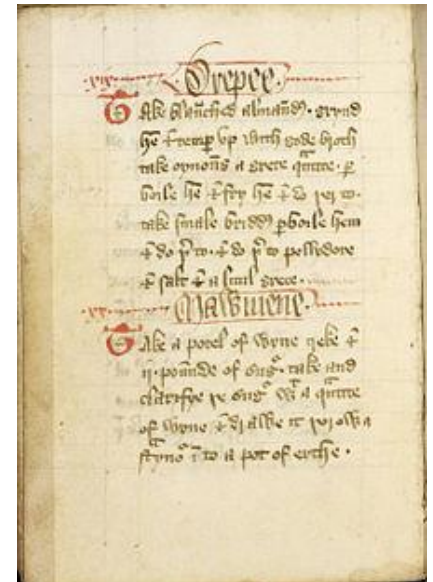 .xix. Drepee.
Take blañched almañd. grynd
he̅ & temp vp with gode broth
take oynoñs a grete qᵃtite. p̱
boile he̅ & fry he̅ & do þer to.
take smale bridd p̱boile hem
& do þ to. & do þ to pellydore
& salt & a litul grece.
.xx. Mawmene.
Take a potel of wyne greke &
ij. pounde of sug. take and
clarifye þe sug wᵗ a qᵃtite
of wyne & drawe it þorow a
stynoʳ ī to a pot of erthe.